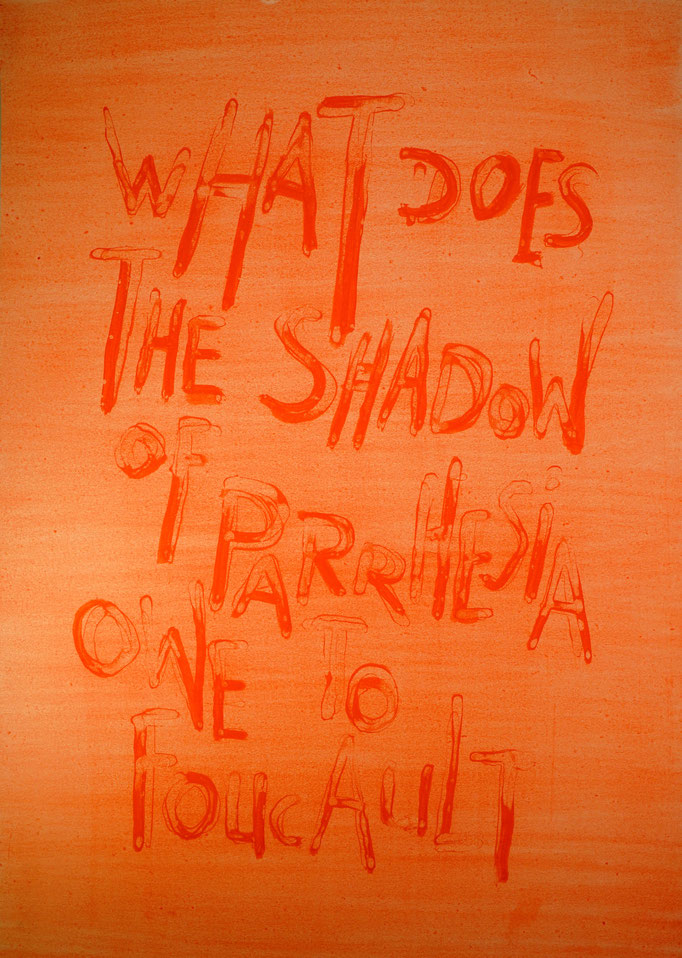 WHAT DOES
THE SHADOW
OF PARRHESIA
OWE TO
FOUCAULT